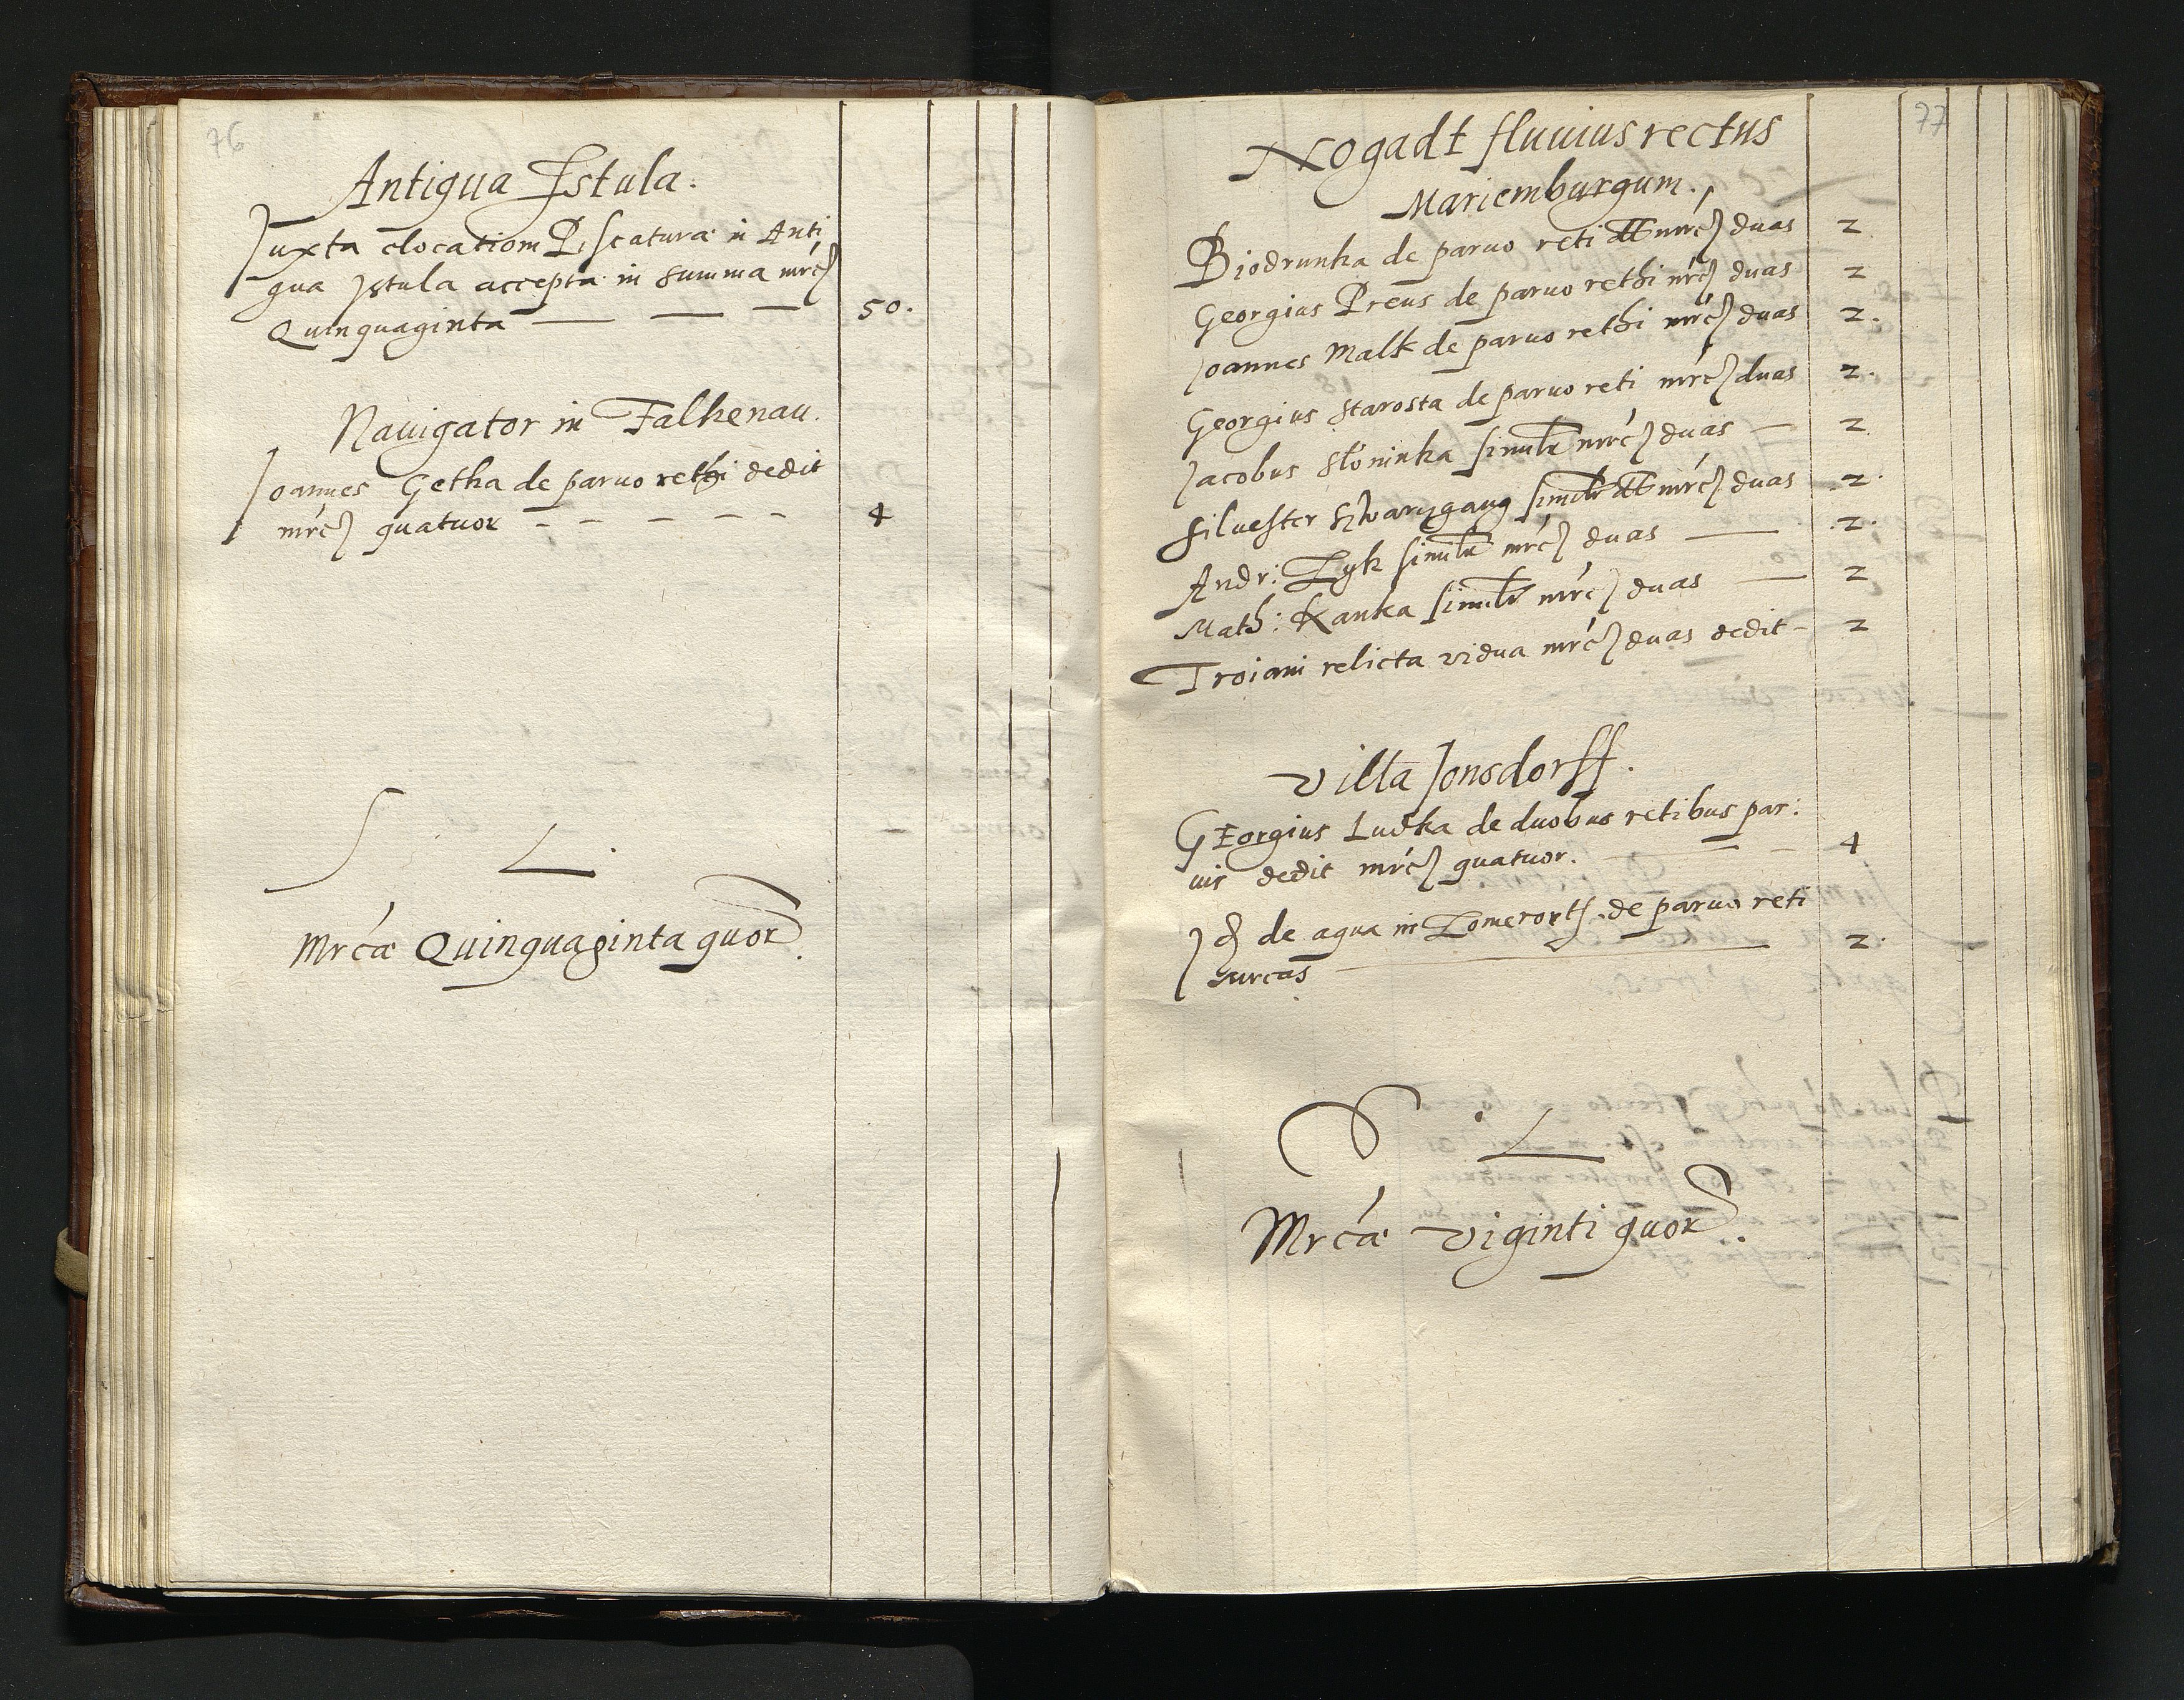 76
Antigua Istula.
Juxta elocationem Piscatura in Anti
qua Istula accepta in summa mrc
Quinquaginta — — — 50.
Nauigator in Falkenau.
Joannes Getka de paruo rethi dedit
mrc quatuor - - - - - 4
S L.
Mrcæ Quinquaginta quor
77
Nogadt fluuius rectus
Mariemburgum.
Biodrunka de paruo reti dt mrc duas 2
Georgius Preus de paruo rethi mrc duas 2
Joannes Malk de paruo rethi mrc duas 2.
Georgius Starosta de paruo reti mrc duas 2.
Jacobus Słoninka simil mrc duas — 2
Siluester simil dt mrc duas 2.
Andr: Lyk simil mrc duas — 2.
Math: Kanka simil mrc duas — 2
Troiani relicta vidua mrc duas dedit - 2
Villa Jonsdorff.
GEorgius Ludka de duobus retibus par:
uis dedit mrc quatuor. — - 4
Id de aqua in de paruo reti
surcas — 2.
L
Mrcæ Viginti quor.